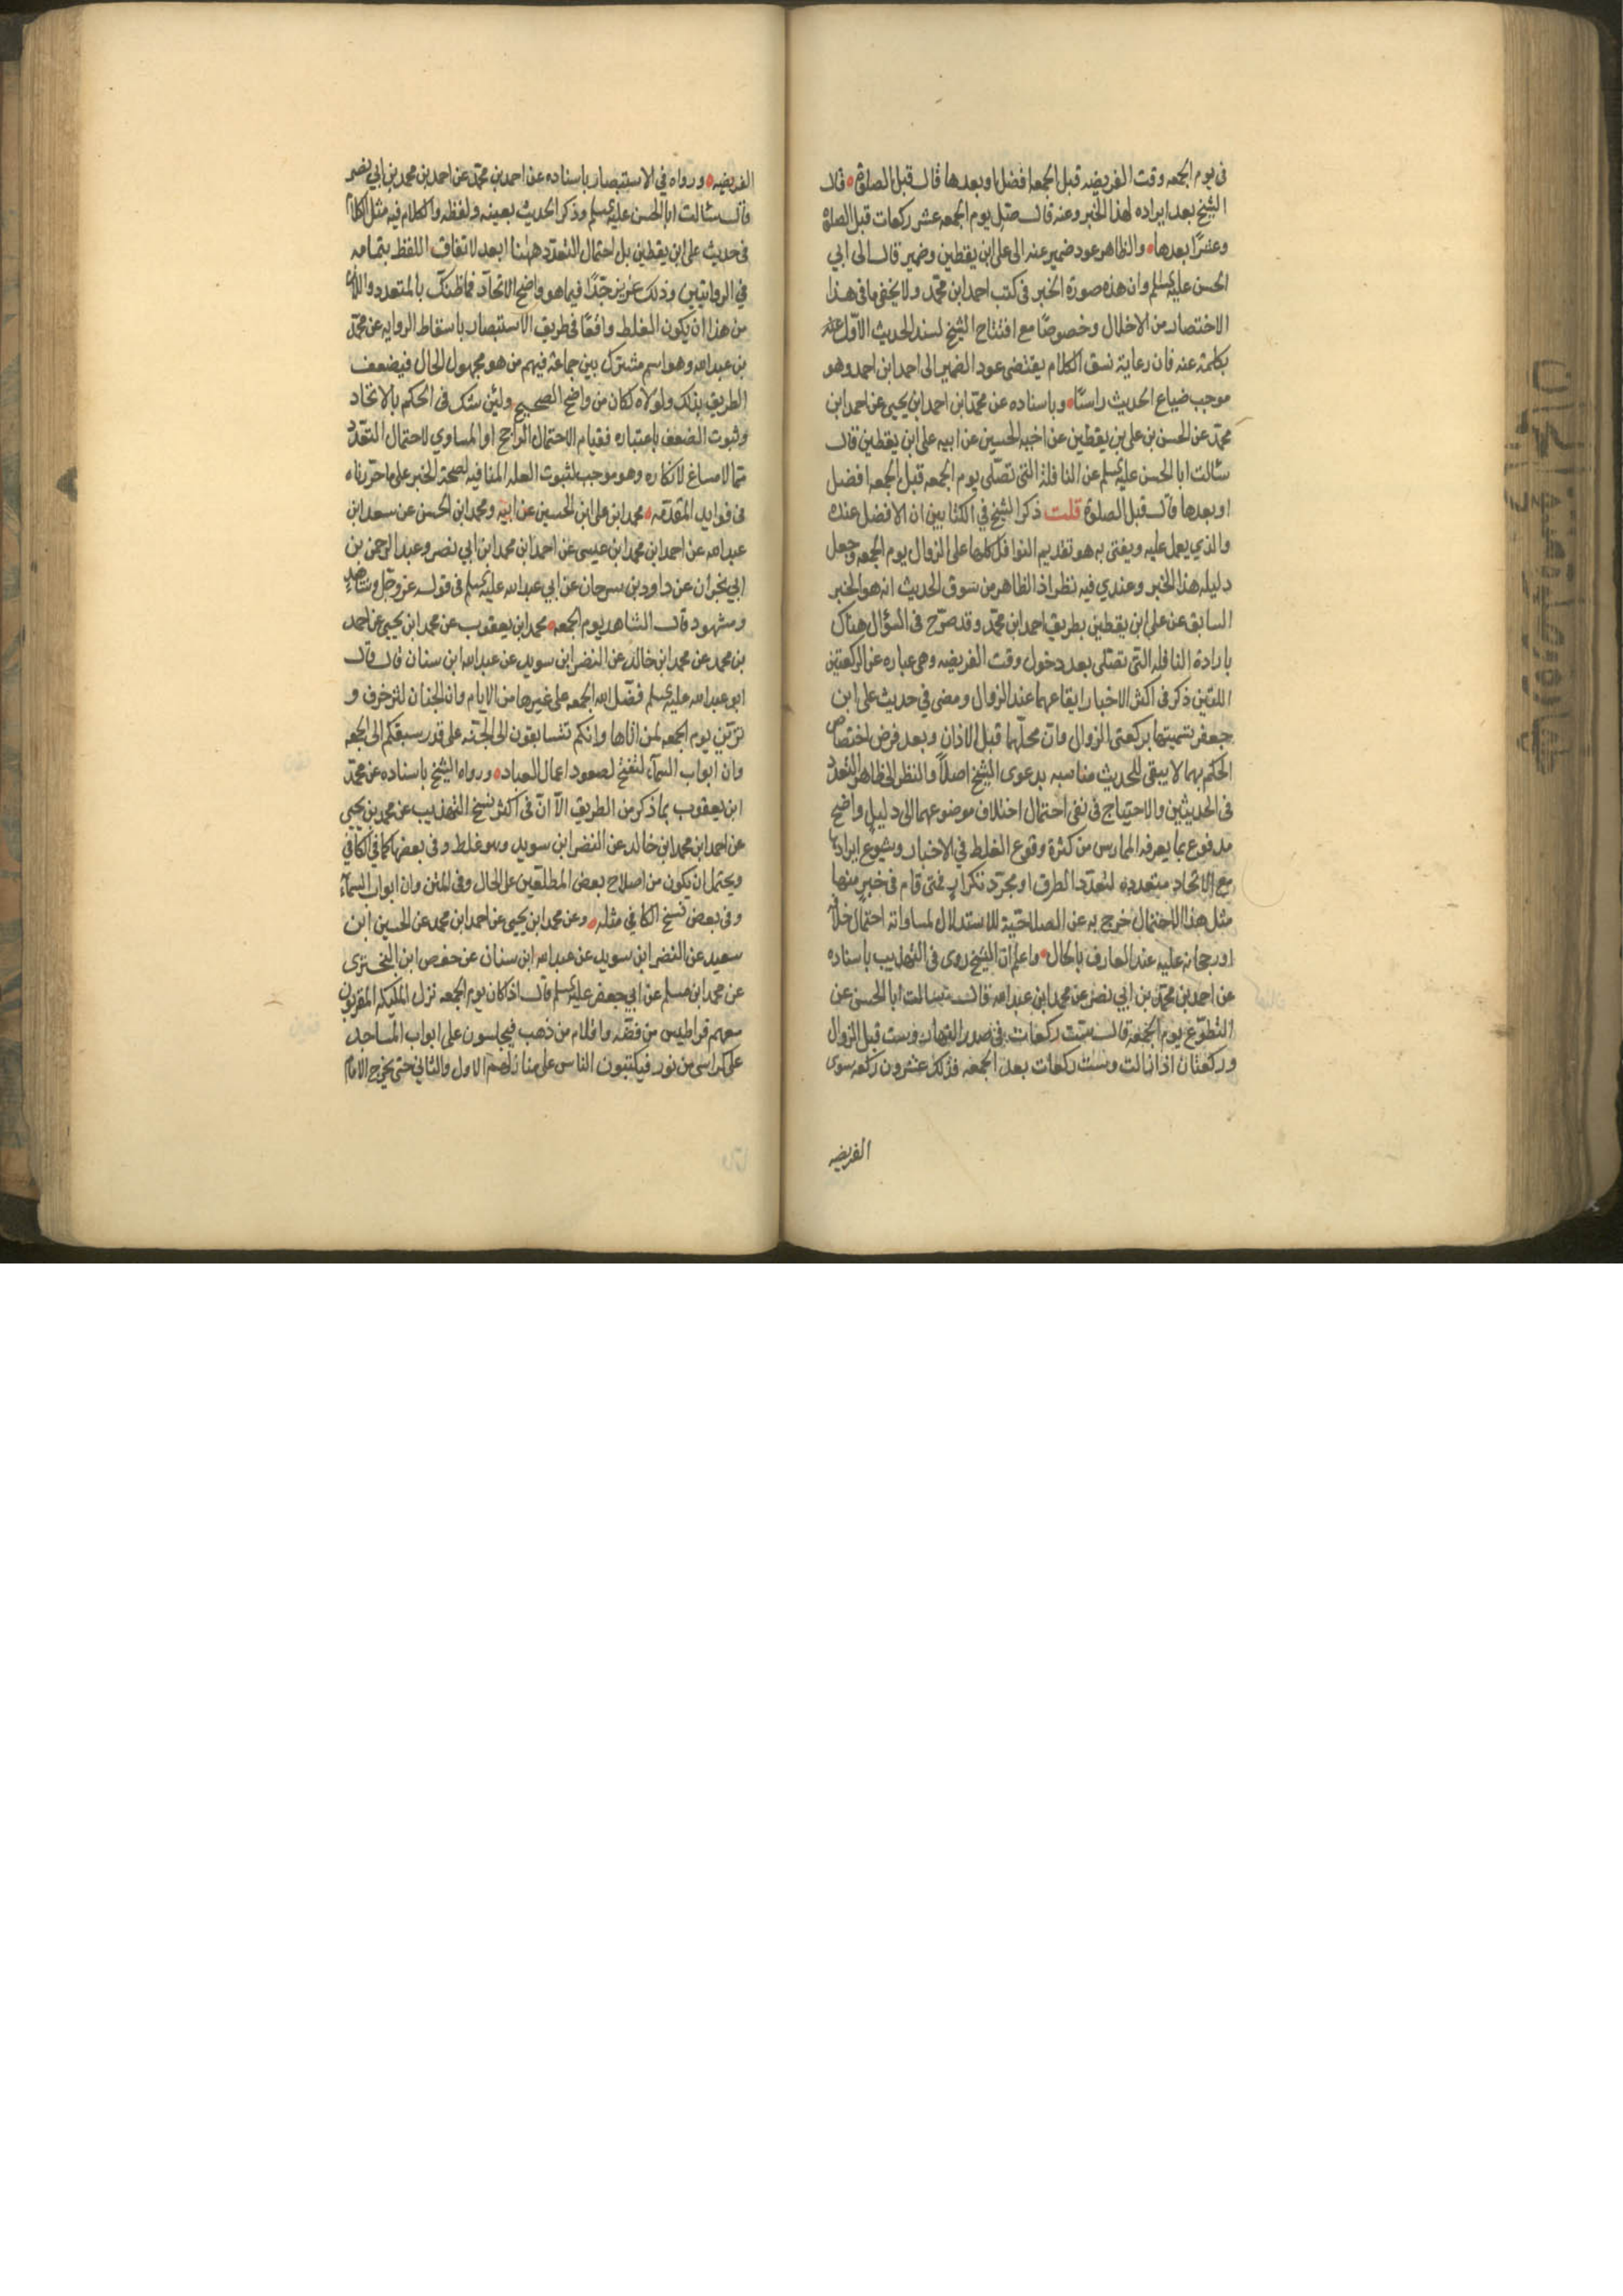 فى يوم الجمعه وقت الفريضه قبل الجمعه افضل او بعدها قال قبل الصلوة قال
الشيخ بعد ايراده لهذا الخبر وعنه قال صل يوم الجمعه عشر ركعات قبل الصلاة
وعشرًا بعدها والظاهر عود ضمير عنه الى على ابن يقطين وضمير قال الى ابي
الحسن عليه السلم وان هذه صورة الخبر فى كتب احمد ابن محمد ولا يخفى ما فى هذا
الاختصار من الاخلال وخصوصًا مع افتتاح الشيخ لسند الحديث الاول عنه
بكلمة عنه فان رعاية نسق الكلام يقتضى عود الضمير الى احمد ابن احمد وهو
موجب ضياع الحديث راسًا وباسناده عن محمد ابن احمد ابن يحيى عن احمد ابن
محمد عن الحسن بن على بن يقطين عن اخيه الحسين عن ابيه على ابن يقطين قال
سالت ابا الحسن عليه السلم عن النافلة التى تصلى يوم الجمعه قبل الجمعه افضل
او بعدها قال قبل الصلوة قلت ذكر الشيخ في الكتابين ان الافضل عنده
والذي يعمل عليه ويفتى به هو تقديم النوافل كلها على الزوال يوم الجمعه وجعل
دليله هذا الخبر وعندي فيه نظر اذ الظاهر من سوق الحديث انه هو الخبر
السابق عن على ابن يقطين بطريق احمد ابن محمد وقد صرح فى السؤال هناك
بارادة النافله التى تصلى بعد دخول وقت الفريضه وهى عباره عن الركعتين
اللتين ذكر فى اكثر الاخبار ايقاعهما عند الزوال ومضى في حديث على ابن
جعفر تسميتهما بركعتى الزوال وان محلهما قبل الاذان وبعد فرض اختصاص
الحكم بهما لا يبقى للحديث مناسبه بدعوى الشيخ اصلاً والنظر الى ظاهر التعدد
فى الحديثين والاحتياج فى نفى احتمال اختلاف موضوعهما الى دليل واضح
مدفوع بما يعرفه الممارس من كثرة وقوع الغلط في الاخبار وشيوع ايرادها
مع الاتحاد متعدده لتعدد الطرق او مجرد تكرار فمتى قام فى خبر منها
مثل هذا الاحتمال خرج به عن الصلاحية للاستدلال لمساواته احتمال خلافه
او رجحانه عليه عند العارف بالحال واعلم ان الشيخ روى فى التهذيب باسناده
عن احمد بن محمد بن ابي نصر عن محمد ابن عبد الله قال سالت ابا الحسن عن
التطوع يوم الجمعة قال ست ركعات فى صدر النهار وست قبل الزوال
وركعتان اذا زالت وست ركعات بعد الجمعه فذلك عشرون ركعه سوى
الفريضه
الفريضه ورواه في الاستبصار باسناده عن احمد بن محمد عن احمد بن محمد بن ابي نصر
قال سالت ابا الحسن عليه السلم وذكر الحديث بعينه ولفظه والكلام فيه مثل الكلام
فى حديث على ابن يقطين بل احتمال التعدد ههنا ابعد لاتفاق اللفظ بتمامه
في الروايتين وذلك عزيز جدًا فيما هو واضح الاتحاد فما ظنك بالمتعدد
من هذا ان يكون الغلط واقعًا فى طريق الاستبصار باسقاط الروايه عن محمد
بن عبد الله وهو اسم مشترك بين جماعة فيهم من هو مجهول الحال فيضعف
الطريق بذلك ولولاه لكان من واضح الصحيح ولئن شك فى الحكم بالاتحاد
وثبوت الضعف باعتباره فقيام الاحتمال الراجح او المساوي لاحتمال التعدد
مما لا مساغ لانكاره وهو موجب لثبوت العله المنافيه لصحة الخبر على ما حررناه
فى فوايد المقدمه محمد ابن على ابن الحسين عن ابيه ومحمد ابن الحسن عن سعد ابن
عبد الله عن احمد ابن محمد ابن عيسى عن احمد ابن محمد ابن ابي نصر وعبد الرحمن بن
ابي نجران عن داود بن سرحان عن ابي عبد الله عليه السلم فى قوله عز وجل وشاهد
ومشهود قال الشاهد يوم الجمعه محمد ابن يعقوب عن محمد ابن يحيى عن احمد
بن محمد عن محمد ابن خالد عن النضر ابن سويد عن عبد الله ابن سنان قال قال
ابو عبد الله عليه السلم فضل الله الجمعه على غيرها من الايام وان الجنان لتزخرف و
تزين يوم الجمعه لمن اتاها وانكم تتسابقون الى الجنه على قدر سبقكم الى الجمعه
وان ابواب السمآء لتفتح لصعود اعمال العباد ورواه الشيخ باسناده عن محمد
ابن يعقوب بما ذكر من الطريق الا ان فى اكثر نسخ التهذيب عن محمد بن يحيى
عن احمد ابن محمد ابن خالد عن النضر ابن سويد وهو غلط وفى بعضها كما فى الكافي
ويحتمل ان يكون من اصلاح بعض المطلعين على الحال وفى المتن وان ابواب السمآء
وفى بعض نسخ الكافي مثله وعن محمد ابن يحيى عن احمد ابن محمد عن الحسين ابن
سعيد عن النضر ابن سويد عن عبد الله ابن سنان عن حفص ابن البخترى
عن محمد ابن مسلم عن ابي جعفر عليه السلم قال اذا كان يوم الجمعه نزل المليكه المقربون
معهم قراطيس من فضه واقلام من ذهب فيجلسون على ابواب المساجد
على كراسى من نور فيكتبون الناس على منازلهم الاول والثاني حتى يخرج الامام